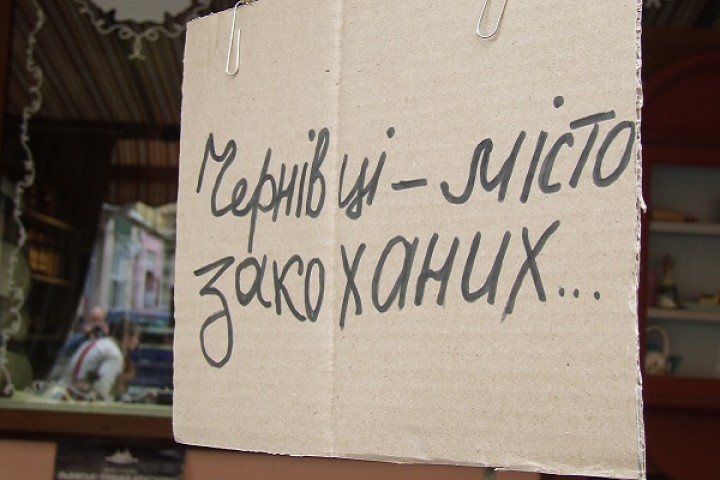 Чернівці – місто
закоханих...